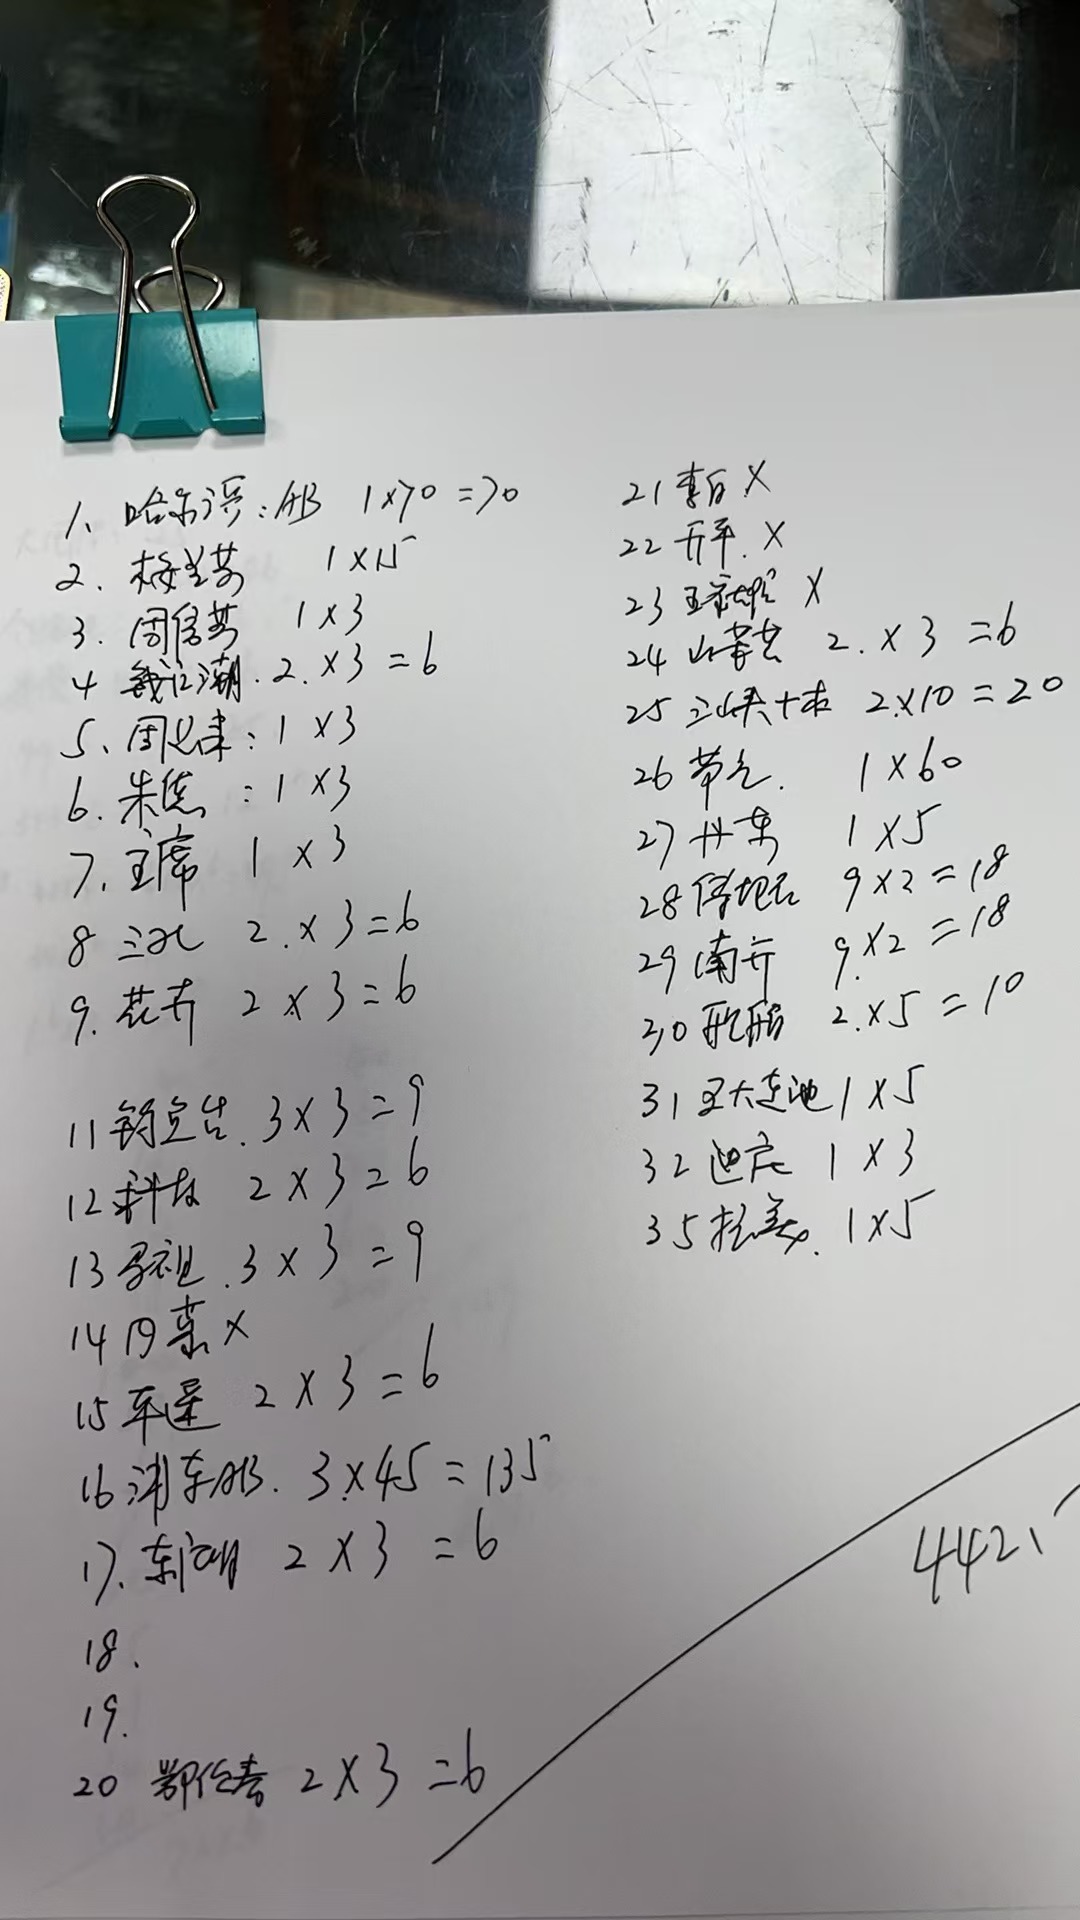 1、哈尔滨：AB 1×70=70
2. 梅兰芳 1×15
3. 周信芳 1×3
4 钱江潮. 2.×3=6
5、周恩来：1×3
6. 朱德：1×3
7. 主席 1×3
8 三孔 2.×3=6
9. 花卉 2×3=6
11 钓鱼台. 3×3=9
12 科技 2×3=6
13 马祖. 3×3=9
14 丹霞 ×
15 平遥 2×3=6
16 浦东AB. 3×45=135
17. 东 2×3=6
18.
19.
20 鄂伦春 2×3=6
21 李白 ×
22 开平. ×
23 ×
24 山茶花 2.×3=6
25 三峡 2×10=20
26 1×60
27 丹东 1×5
28 9×2=18
29 南开 9.×2=18
30 2.×5=10
31 五大连池 1×5
32 迪庆 1×3
35 1×5
442、